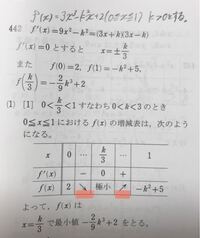 f(x)=3x³-k²x+2(0≦x≦1) k>0とする。
442 f'(x)=9x²-k²=(3x+k)(3x-k)
f'(x)=0とすると x=±k/3
また f(0)=2, f(1)=-k²+5,
f(k/3)=-2/9k³+2
(1) [1] 0<k/3<1 すなわち 0<k<3 のとき
0≦x≦1 における f(x) の増減表は、次のように
なる。
x 0 … k/3 … 1
f'(x) - 0 +
f(x) 2 ↘ 極小 ↗ -k²+5
よって、f(x) は
x=k/3 で最小値 -2/9k³+2 をとる。